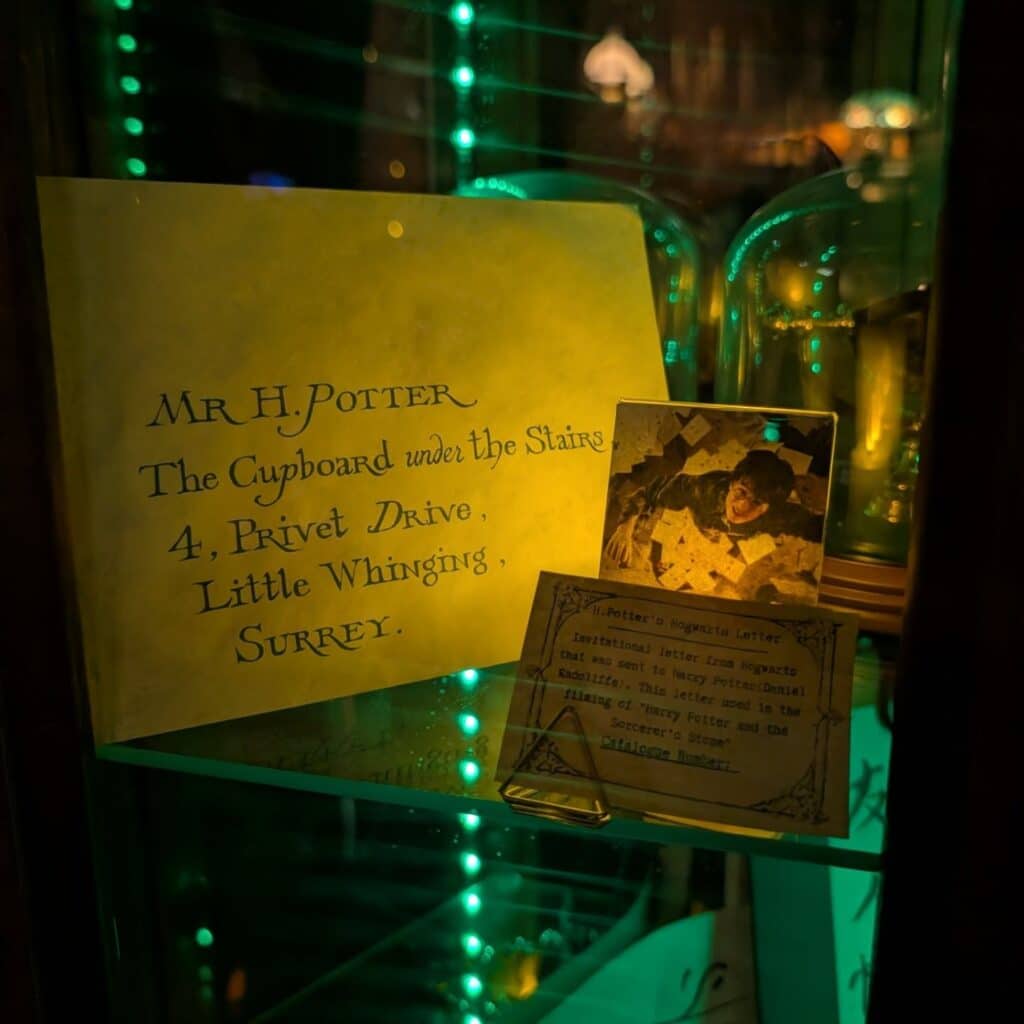 Mr H. Potter
The Cupboard under the Stairs
4, Privet Drive,
Little Whinging,
Surrey.
H.Potter's Hogwarts Letter
Invitational letter from Hogwarts
that was sent to Harry Potter(Daniel
Radcliffe). This letter used in the
filming of "Harry Potter and the
Sorcerer's Stone"
Catalogue Number: